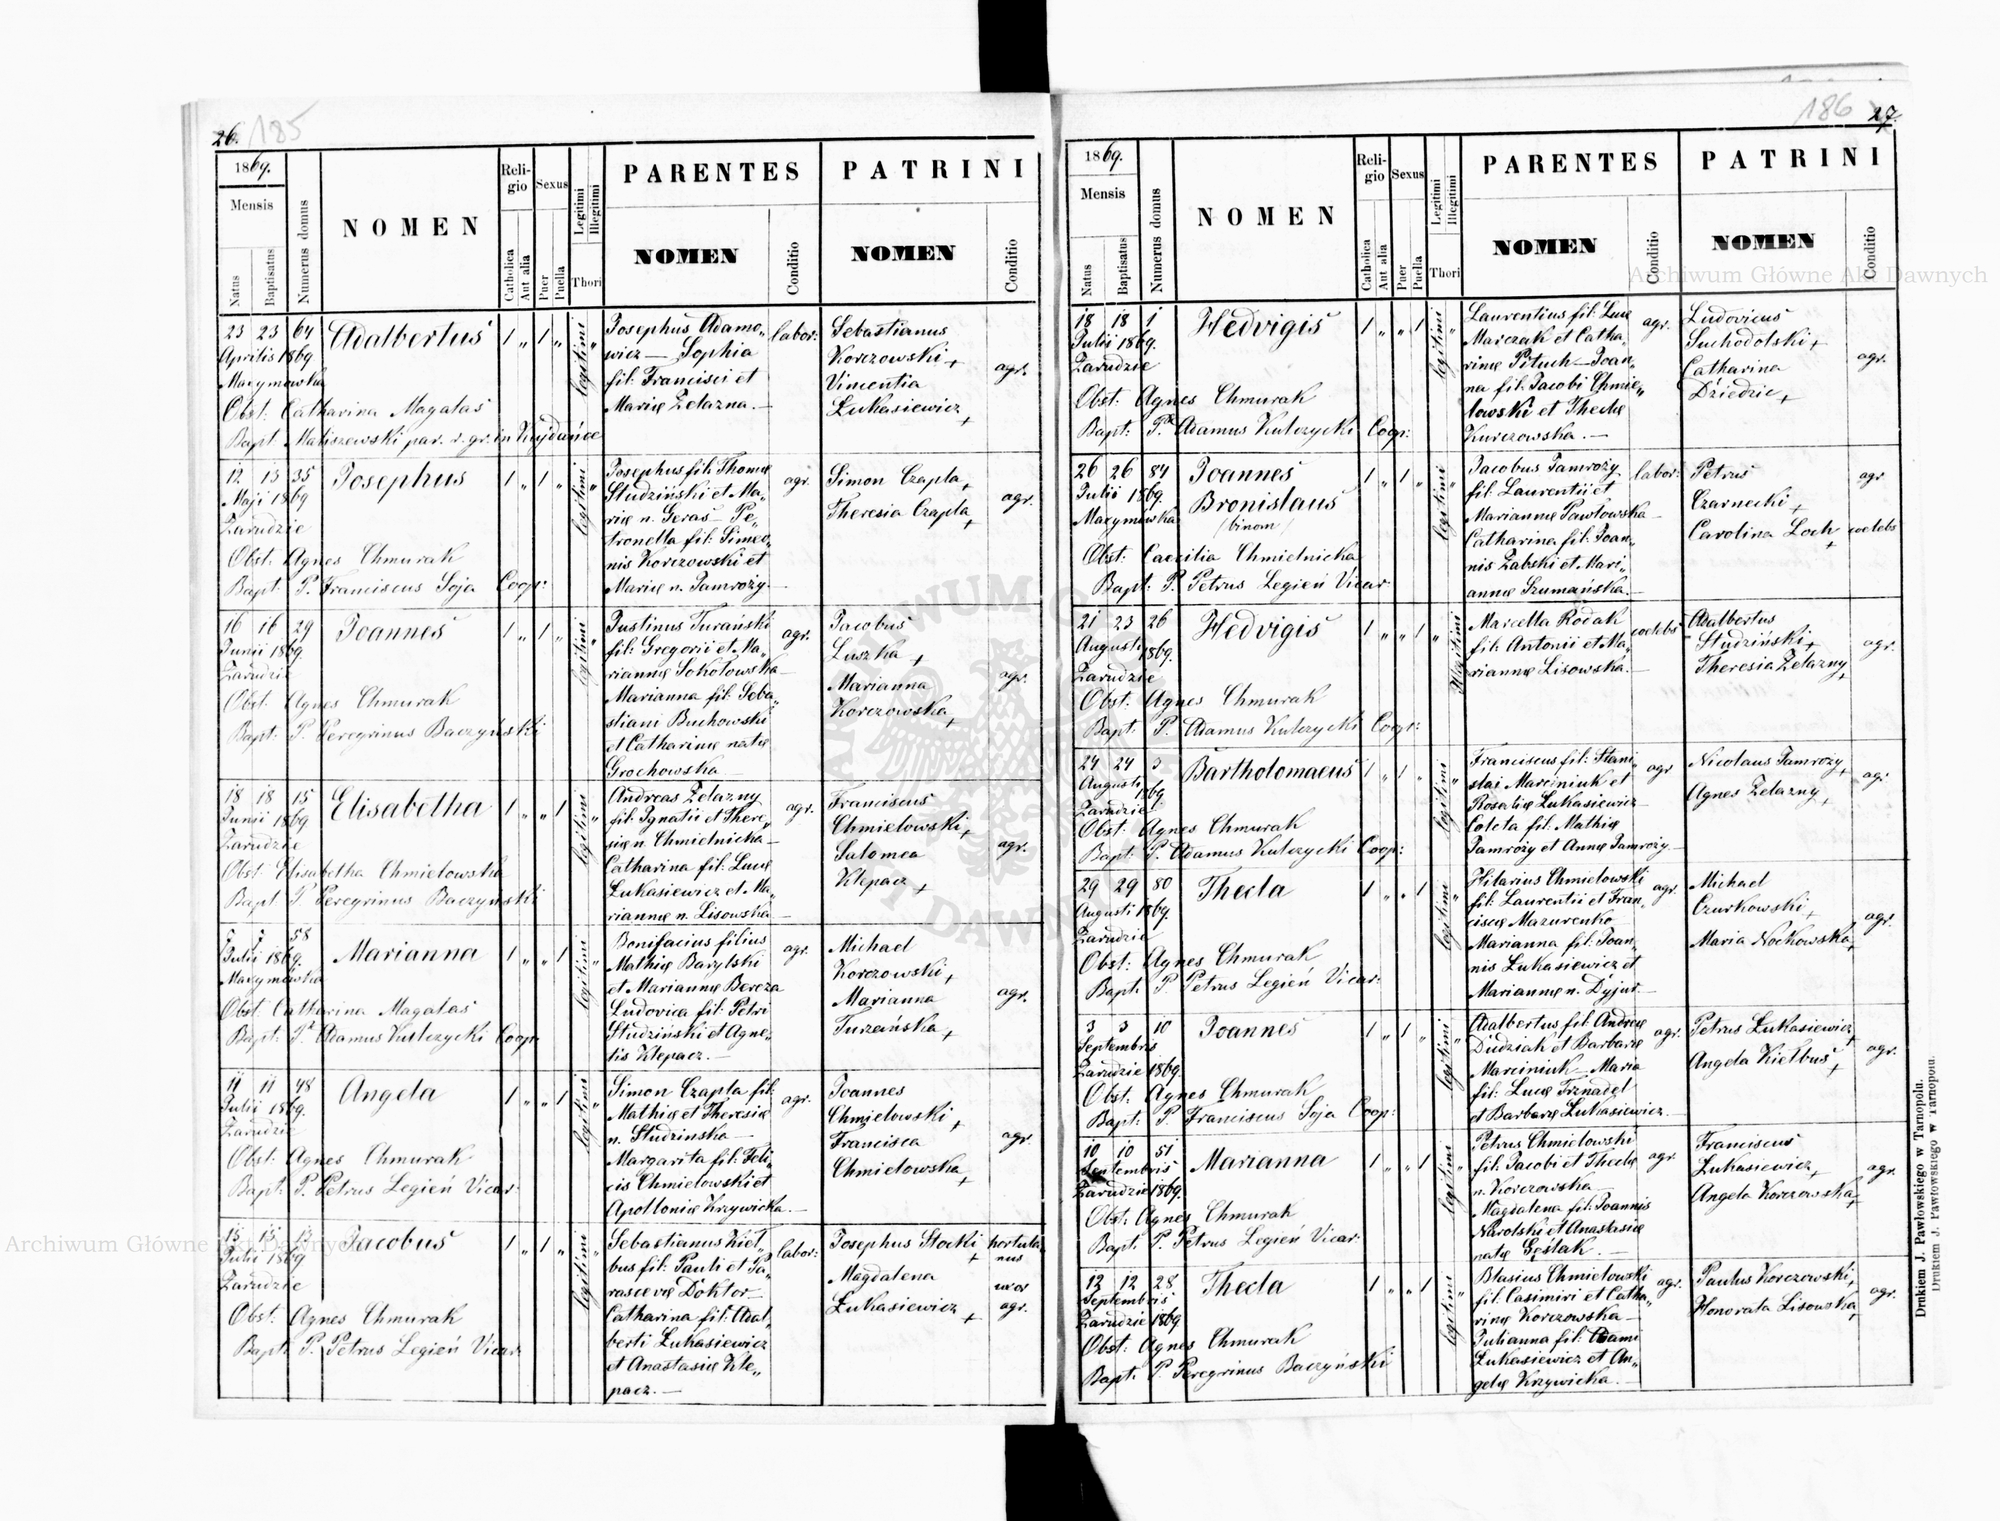 26. 185
1869.
Mensis
Natus
Baptisatus
Numerus domus
NOMEN
Religio
Catholica
Aut alia
Sexus
Puer
Puella
Legitimi
Illegitimi
Thori
PARENTES
NOMEN
Conditio
PATRINI
NOMEN
Conditio
23 23 64 Adalbertus 1 „ 1 „ legitimi „
Aprilis 1869
Maxymowka
Obst: Catharina Magalas
Bapt Matiszewski par. r. gr. in Kujdańce
Josephus Adamo„
wicz — Sophia
fil: Francisci et
Mariæ Żelazna. —
labor:
Sebastianus
Korczowski +
Vincentia
Łukasiewicz +
agr.
12 13 35 Josephus 1 „ 1 „ legitimi „
Maji 1869
Zarudzie
Obst: Agnes Chmurak
Bapt P. Franciscus Soja Coop:
Josephus fil: Thomæ
Studziński et Ma„
riæ n. Geras — Pe„
tronella fil: Simeo„
nis Korczowski et
Mariæ n. Jamroży. —
agr.
Simon Czapla +
Theresia Czapla +
agr.
16 16 29 Joannes 1 „ 1 „ legitimi „
Junii 1869.
Zarudzie
Obst: Agnes Chmurak
Bapt: P. Peregrinus Baczyński
Justinus Turański
fil: Gregorii et Ma„
riannæ Sokołowska —
Marianna fil: Seba„
stiani Buchowski
et Catharinæ natæ
Grochowska —
agr.
Jacobus
Luszka +
Marianna
Korczowska +
agr.
18 18 15 Elisabetha 1 „ „ 1 legitimi „
Junii 1869
Zarudzie
Obst: Elisabetha Chmielowska
Bapt P Peregrinus Baczyński
Andreas Żelazny
fil: Ignatii et There„
siæ n. Chmielnicka —
Catharina fil: Lucæ
Łukasiewicz et Ma„
riannæ n. Lisowska —
agr.
Franciscus
Chmielowski +
Salomea
Klepacz +
agr.
5 5 58 Marianna 1 „ „ 1 legitimi „
Julii 1869.
Maxymowka
Obst: Catharina Magalas
Bapt: P. Adamus Kulczycki Coop:
Bonifacius filius
Mathiæ Barylski
et Mariannæ Bereza
Ludovica fil: Petri
Studziński et Agne„
tis Klepacz. —
agr.
Michael
Korczowski +
Marianna
Turzańska +
agr.
11 11 48 Angela 1 „ „ 1 legitimi „
Julii 1869.
Zarudzie
Obst: Agnes Chmurak
Bapt: P. Petrus Legień Vicar:
Simon Czapla fil:
Mathiæ et Theresiæ
n. Studzinska —
Margarita fil: Feli„
cis Chmielowski et
Apolloniæ Krzywicka. —
agr.
Joannes
Chmielowski +
Francisca
Chmielowska +
agr.
15 15 13 Jacobus 1 „ 1 „ legitimi „
Julii 1869
Zarudzie
Obst: Agnes Chmurak
Bapt: P. Petrus Legień Vicar:
Sebastianus Kieł„
bus fil: Pauli et Pa„
rascevæ Doktor —
Catharina fil: Adal„
berti Łukasiewicz
et Anastasiæ Kle„
pacz. —
labor:
Josephus Stocki +
Magdalena
Łukasiewicz +
hortula„
nus
uxor
agr.
186 27.
1869.
Mensis
Natus
Baptisatus
Numerus domus
NOMEN
Religio
Catholica
Aut alia
Sexus
Puer
Puella
Legitimi
Illegitimi
Thori
PARENTES
NOMEN
Conditio
PATRINI
NOMEN
Conditio
18 18 1 Hedvigis 1 „ „ 1 legitimi „
Julii 1869.
Zarudzie
Obst: Agnes Chmurak
Bapt: P. Adamus Kulczycki Coop:
Laurentius fil: Lucæ
Marczak et Catha„
rinæ Pituch — Joan„
na fil: Jacobi Chmie„
lowski et Theclæ
Kurczowska. —
agr.
Ludovicus
Suchodolski +
Catharina
Dziedzic +
agr.
26 26 84 Joannes 1 „ 1 „ legitimi „
Julii 1869.
Maxymówka
Bronislaus
/binom/
Obst: Caecilia Chmielnicka
Bapt: P. Petrus Legień Vicar:
Jacobus Jamroży
fil: Laurentii et
Mariannæ Pawłowska —
Catharina fil: Joan„
nis Żabski et Mari„
annæ Szumańska. —
labor:
Petrus
Czarnecki +
Carolina Loch +
agr
coelebs
21 23 26 Hedvigis 1 „ „ 1 „ illegitimi
Augusti 1869.
Zarudzie
Obst: Agnes Chmurak
Bapt: P. Adamus Kulczycki Coop:
Marcella Rodak
fil: Antonii et Ma„
riannæ Lisowska. —
coelebs
Adalbertus
Studziński +
Theresia Żelazny +
agr.
24 24 3 Bartholomaeus 1 „ 1 „ legitimi „
Augusti 69
Zarudzie
Obst: Agnes Chmurak
Bapt: P. Adamus Kulczycki Coop:
Franciscus fil: Stani„
slai Marciniuk et
Rosaliæ Łukasiewicz —
Coleta fil: Mathiæ
Jamroży et Annæ Jamroży —
agr
Nicolaus Jamroży +
Agnes Żelazny +
agr
29 29 80 Thecla 1 „ „ 1 legitimi „
Augusti 1869.
Zarudzie
Obst: Agnes Chmurak
Bapt: P. Petrus Legień Vicar:
Hilarius Chmielowski
fil: Laurentii et Fran„
ciscæ Mazurenko
Marianna fil: Joan„
nis Łukasiewicz et
Mariannæ n. Dyjur. —
agr.
Michael
Czurkowski +
Maria Nockowska +
agr.
3 3 10 Joannes 1 „ 1 „ legitimi „
Septembris
Zarudzie 1869.
Obst: Agnes Chmurak
Bapt: P. Franciscus Soja Coop:
Adalbertus fil: Andreæ
Dudziak et Barbaræ
Marciniuk — Maria
fil: Lucæ Trznadel
et Barbaræ Łukasiewicz. —
agr.
Petrus Łukasiewicz +
Angela Kiełbus +
agr.
10 10 51 Marianna 1 „ „ 1 legitimi „
Septembris
Zarudzie 1869.
Obst: Agnes Chmurak
Bapt: P. Petrus Legień Vicar:
Petrus Chmielowski
fil: Jacobi et Theclæ
n. Korczowska —
Magdalena fil: Joannis
Narolski et Anastasiæ
natæ Gęślak. —
agr.
Franciscus
Łukasiewicz +
Angela Korczowska +
agr.
12 12 28 Thecla 1 „ „ 1 legitimi „
Septembris
Zarudzie 1869
Obst: Agnes Chmurak
Bapt: P Peregrinus Baczyński
Blasius Chmielowski
fil: Casimiri et Catha„
rinæ Korczowska —
Julianna fil: Adami
Łukasiewicz et An„
gelæ Krzywicka. —
agr.
Paulus Korczowski +
Honorata Lisowska +
agr.
Drukiem J. Pawłowskiego w Tarnopolu.
Drukiem J. Pawłowskiego w Tarnopolu.
Archiwum Główne Akt Dawnych
Archiwum Główne Akt Dawnych
ARCHIWUM GŁÓWNE AKT DAWNYCH